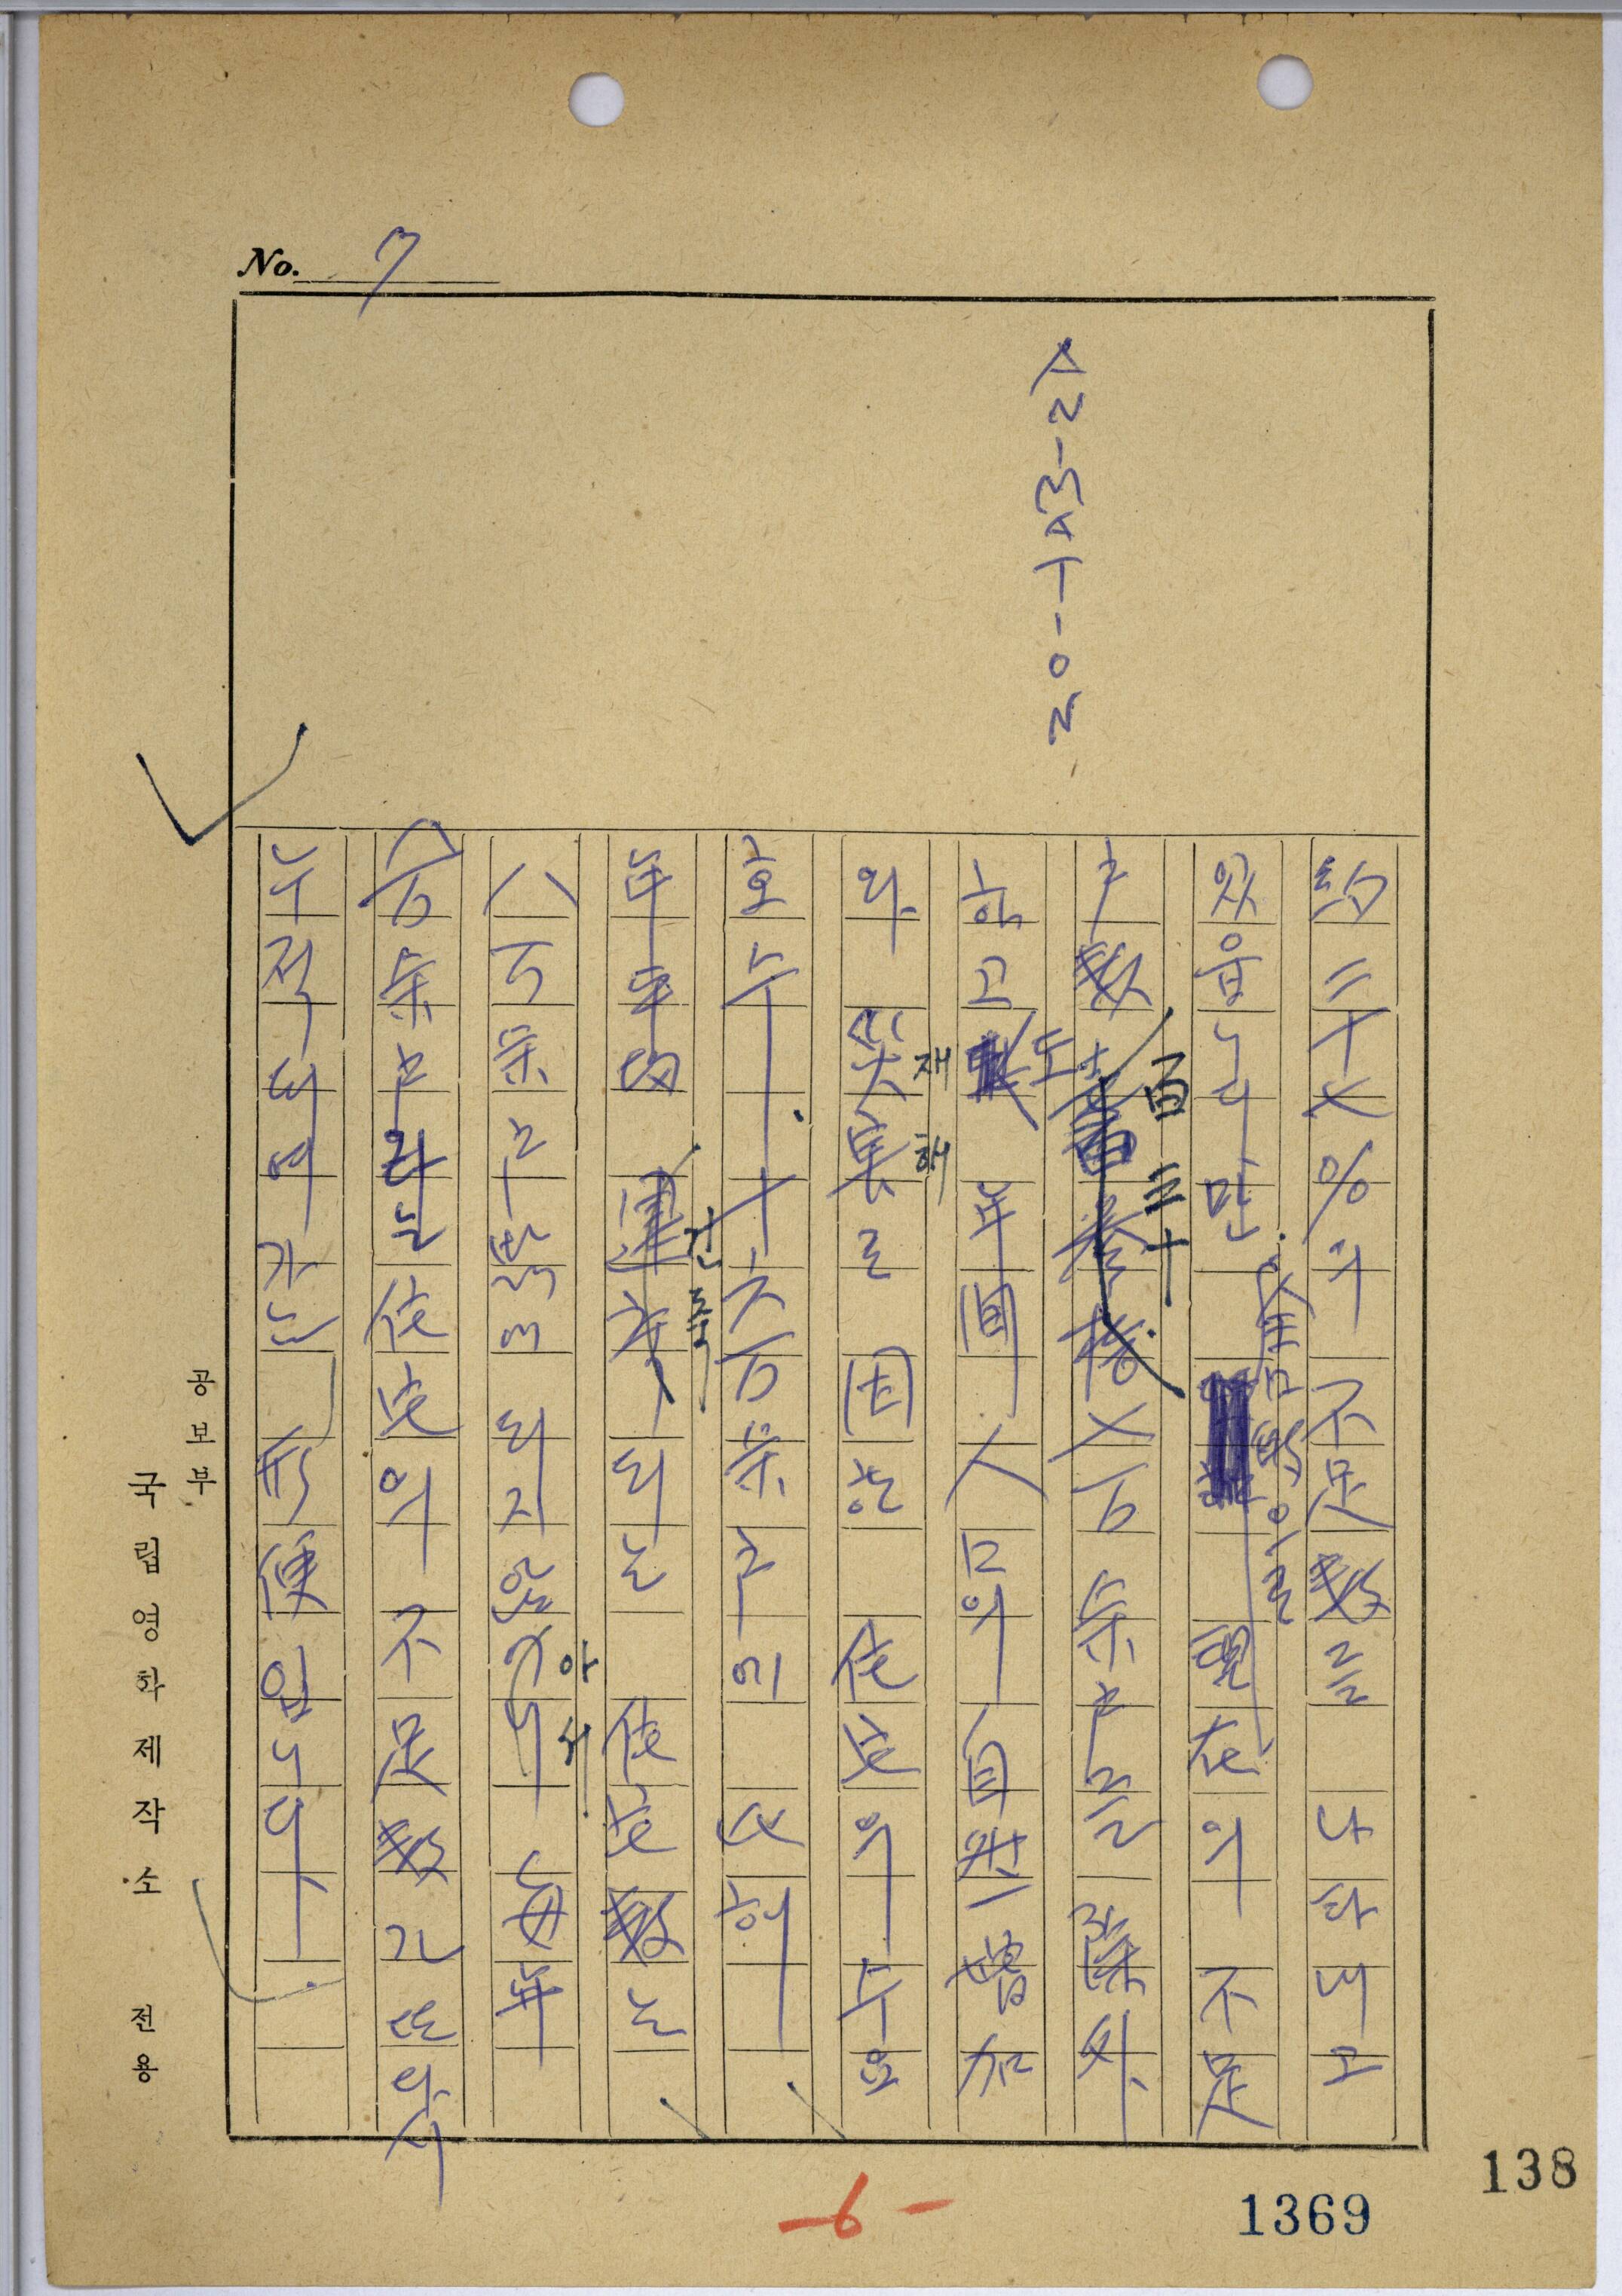 No. 7
ANIMATION
約三十七%의 不足數를 나타내고
있읍니다만. 現在의 不足
戶數 百三十七万余戶를 除外
하고도 年間 人口의 自然增加
와 災害로 因한 住宅의 수요
재해
호수 十六万余戶에 比해
年平均 되는 住宅數는
건축
八万余戶밖에 되지않 每年
아서
八万余戶라는 住宅의 不足數가 또다시
누적되여가는 形便입니다.
공보부
국립영화제작소 전용
-6-
1369
138